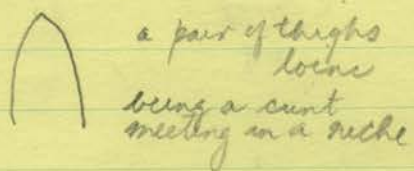 a pair of thighs
loins
being a cunt
meeting in a niche